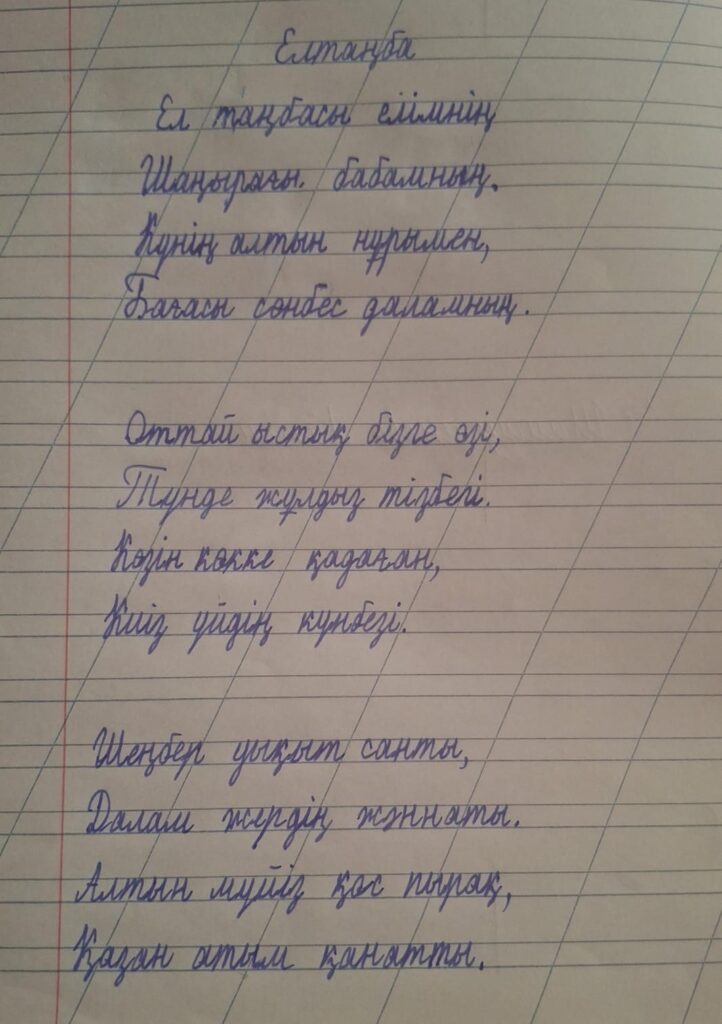 Елтаңба
Ел таңбасы елімнің
Шаңырағы бабамның.
Күнің алтын нұрымен,
Бағасы сөнбес даламның.
Оттай ыстық бізге өзі,
Түнде жұлдыз тізбегі.
Көзін көкке қадаған,
Киіз үйдің күнбезі.
Шеңбер уықыт санты,
Далам жердің жәннаты.
Алтын мүйіз қос пырақ,
Қазан атым қанатты.